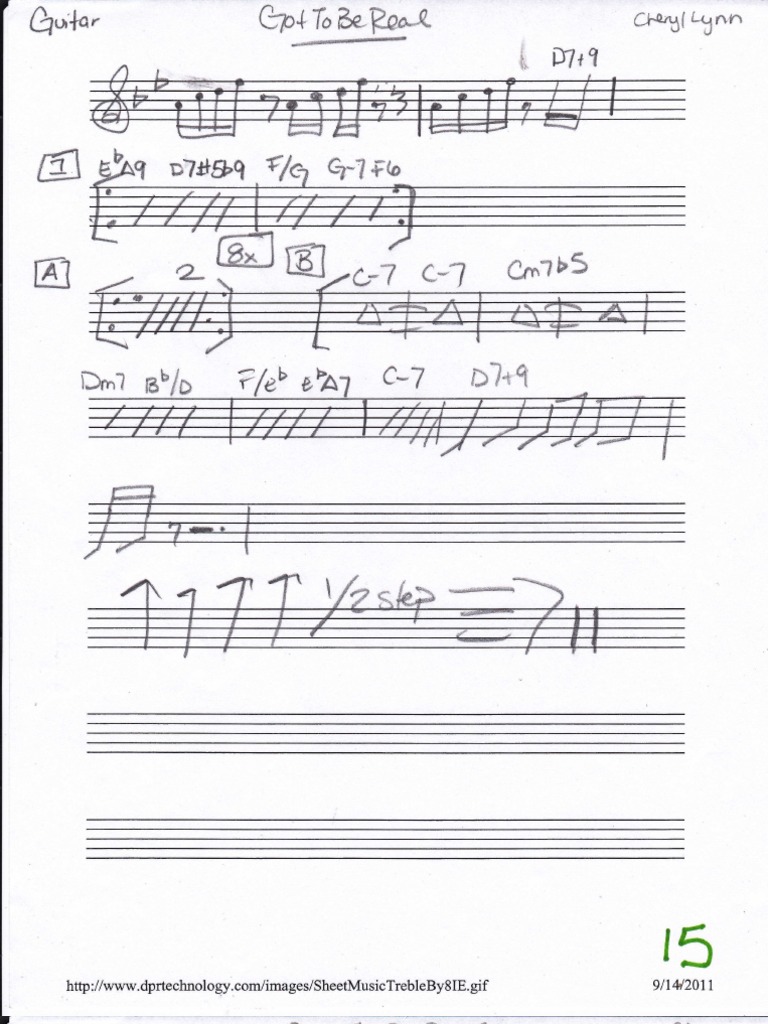 Guitar Got To Be Real Cheryl Lynn
D7+9
I E♭Δ9 D7#5b9 F/G G-7 F6
A 2 8x B C-7 C-7 Cm7b5
Dm7 B♭/D F/E♭ E♭Δ7 C-7 D7+9
1/2 step
15
http://www.dprtechnology.com/images/SheetMusicTrebleBy8IE.gif 9/14/2011